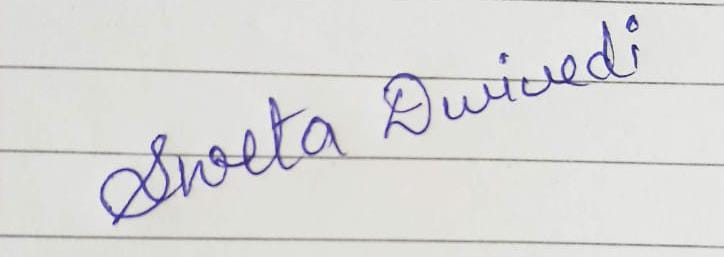 Sweta Dwivedi